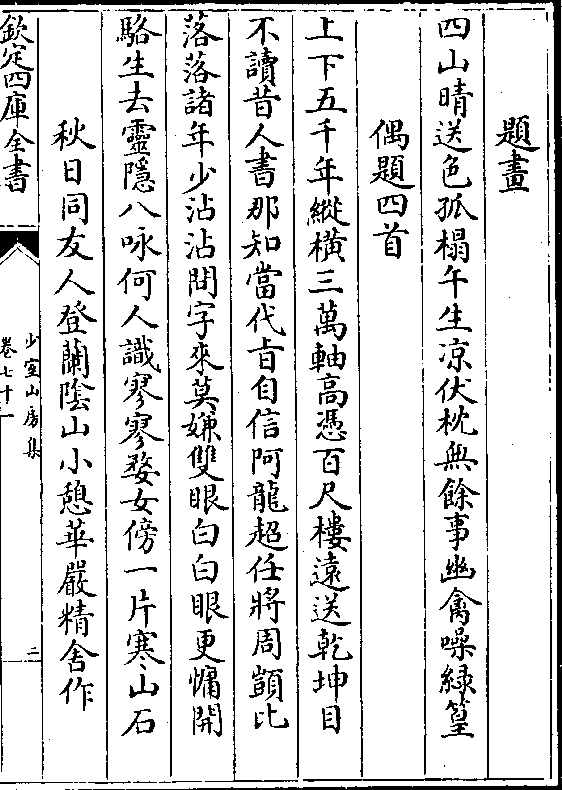 題畫
四山晴送色孤榻午生凉伏枕無餘事幽禽噪緑篁
偶題四首
上下五千年縱橫三萬軸高憑百尺樓遠送乾坤目
不讀昔人書那知當代㫖自信阿龍超任將周顗比
落落諸年少沾沾問字來莫嫌雙眼白白眼更慵開
駱生去靈隱八咏何人識寥寥婺女傍一片寒山石
秋日同友人登蘭隂山小憩華嚴精舍作
欽定四庫全書
少室山房集
卷七十一
二